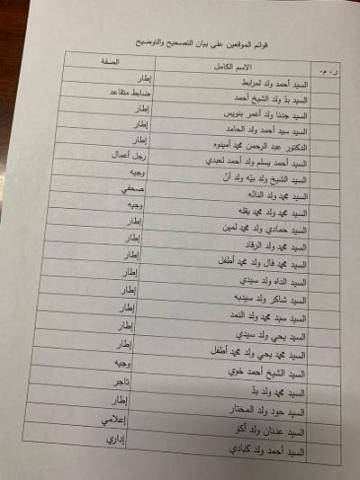 قوائم الموقعين على بيان التصحيح والتوضيح
ر.م. الاسم الكامل الصفة
السيد أحمد ولد لمرابط إطار
السيد بدّ ولد الشيخ أحمد ضابط متقاعد
السيد جدنا ولد أعمر بنويس إطار
السيد سيد أحمد ولد الحامد إطار
الدكتور عبد الرحمن محمد أمينوه إطار
السيد أحمد يسلم ولد أحمد لعبدي رجل أعمال
السيد الشيخ ولد بيّه ولد أنّ وجيه
السيد محمد ولد النائه صحفي
السيد محمد ولد محمد يقله وجيه
السيد حمادي ولد محمد لمين إطار
السيد محمد ولد الرقاد إطار
السيد محمد فال ولد محمد أطفل إطار
السيد الداه ولد سيدي إطار
السيد شاكر ولد سيديه إطار
السيد سيد محمد ولد النمد إطار
السيد يحي ولد سيدي إطار
السيد محمد يحي ولد محمد أطفل إطار
السيد الشيخ أحمد خوي وجيه
السيد محمد ولد بدّ تاجر
السيد حود ولد المختار إطار
السيد عدنان ولد أكو إعلامي
السيد أحمد ولد كبادي إداري